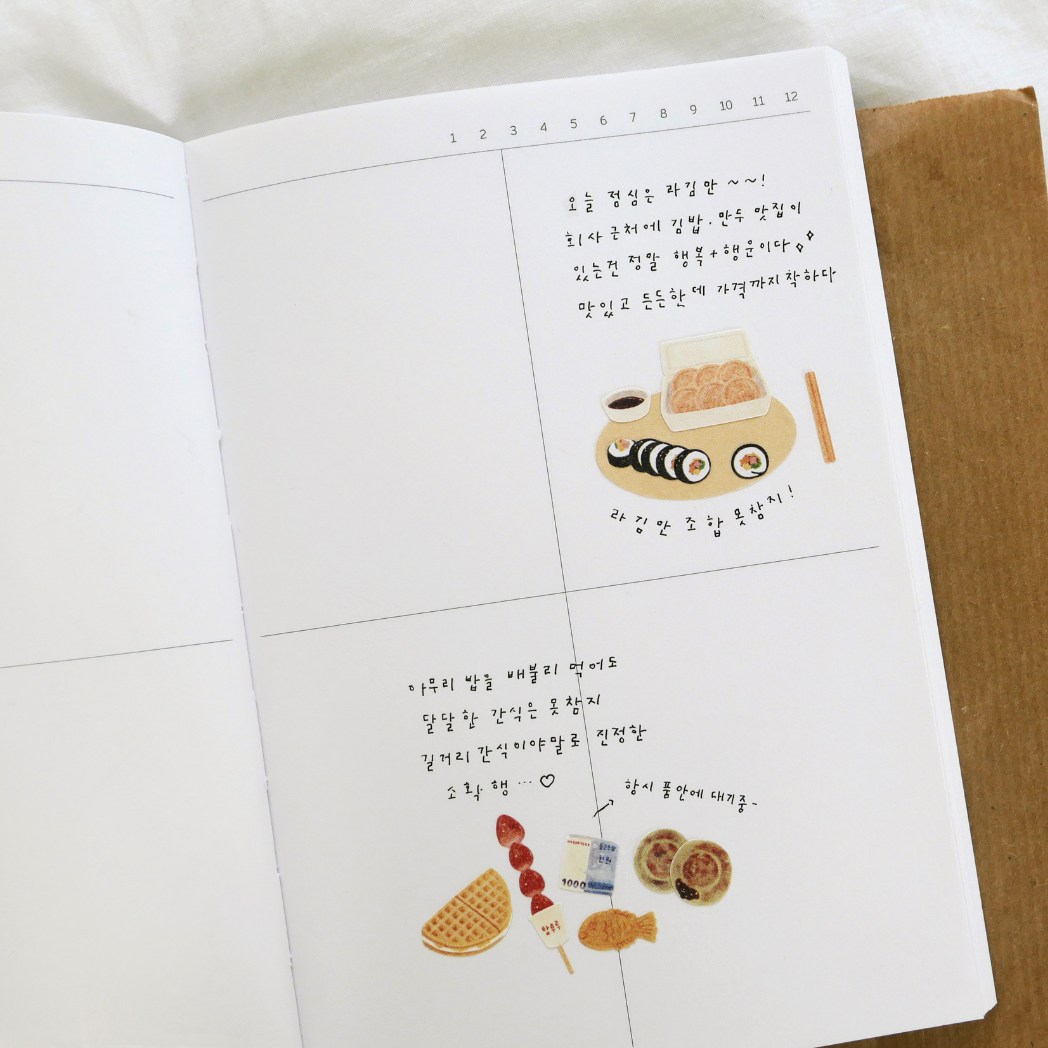 1 2 3 4 5 6 7 8 9 10 11 12
오늘 점심은 라김만 ~~!
회사근처에 김밥·만두 맛집이
있는건 정말 행복+행운이다
맛있고 든든한데 가격까지착하다
라김만 조합 못참지!
아무리 밥을 배불리 먹어도
달달한 간식은 못참지
길거리 간식이야말로 진정한
소확행 ··· ♡
항시 품안에 대기중~
천원
1000
탕후루